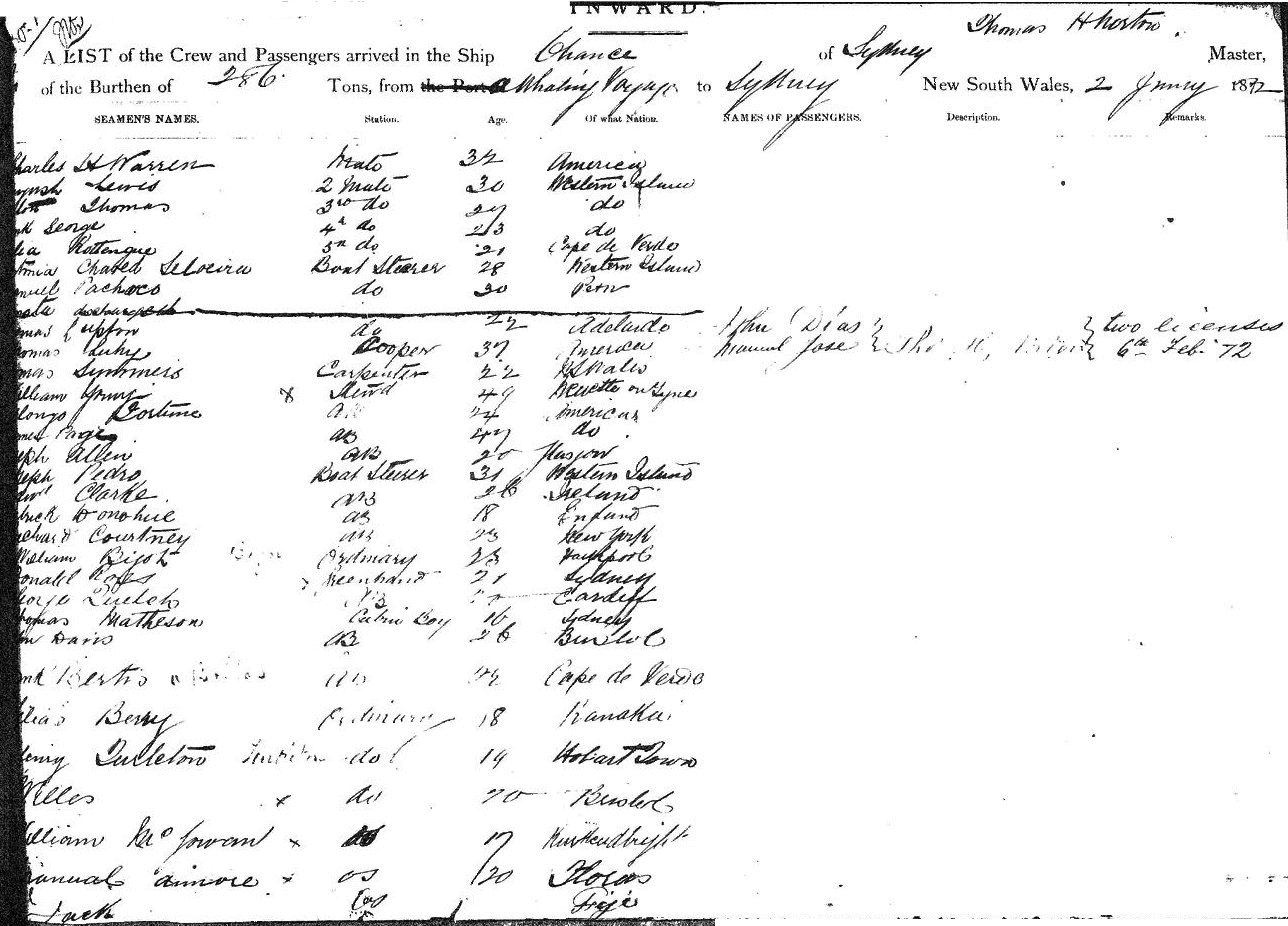 INWARD.
Thomas H Norton
A LIST of the Crew and Passengers arrived in the Ship Chance of Sydney Master,
of the Burthen of 286 Tons, from the Port a Whaling Voyage to Sydney New South Wales, 2 Jnury 1872
SEAMEN'S NAMES. Station. Age. Of what Nation. NAMES OF PASSENGERS. Description. Remarks.
harles H Warren Mate 32 America
Lewis 2 Mate 30 Western Island
Thomas 3rd do 27 do
George 4th do 23 do
5th do 21 Cape de Verde
Chaves Boat Steerer 28 Western Island
Pacheco do 30 Peru
mas Upton do 22 Adelaide John Dias two licenses
homas Luky Cooper 37 America Manuel Jose 6th Feb 72
mas Summers Carpenter 22 N S Wales
illiam Young x Stewd 49
longo Fortune AB 24 America
Page AB 47 do
eph Allen AB 20 Glasgow
seph Pedro Boat Steerer 31 Western Island
Clarke AB 26 Ireland
trick Donohue AB 18 England
ichard Courtney AB 23 New York
William Ordinary 23
onald Ross 21 Sydney
orge Quelch AB Cardiff
homas Matheson Cabin Boy 16 Sydney
hn Davis AB 26 Bristol
nk Bertis AB 22 Cape de Verde
lias Berry Ordinary 18 Kanaka
enry do 19 Hobart Town
Willes x do 20 Bristol
illiam McGowan x do 17 Kirkcudbright
anual x os 20 Flores
Jack os Fije